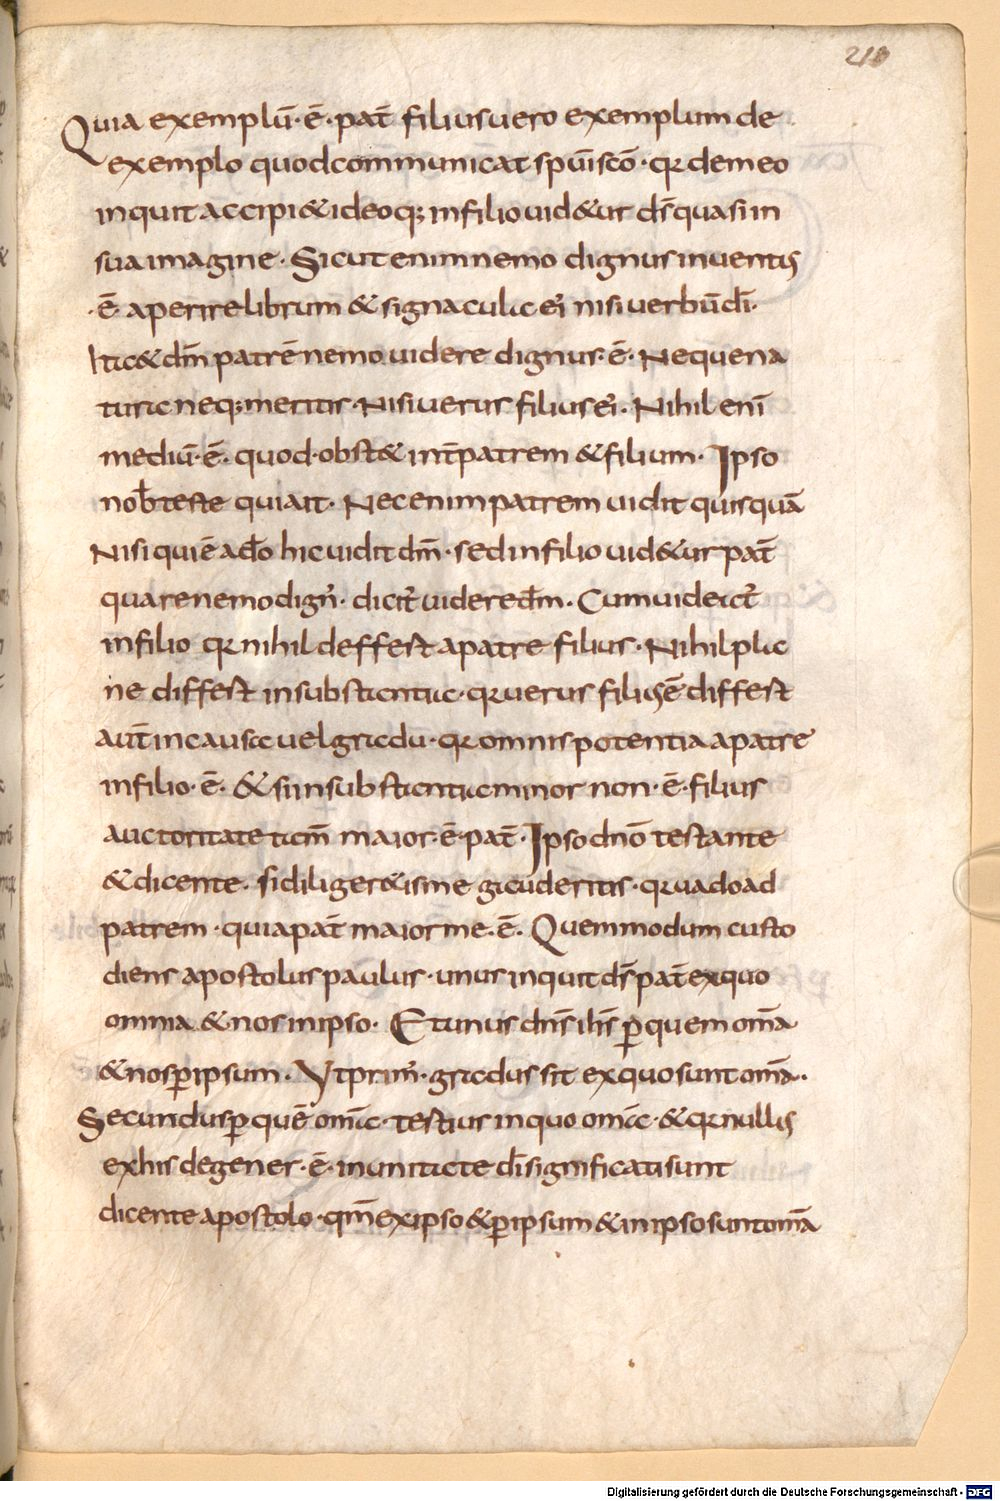 210
Quia exemplū·ē·pat̄ filius uero exemplum de
exemplo quod communicat spūi scō· qr de meo
inquit accipi& ideoq; in filio uid&ur ds̄ quasi in
sua imagine· Sicut enim nemo dignus inuentus
·ē· aperire librum & signacula ei' nisi uerbū dī·
Ita & dm̄ patrē nemo uidere dignus·ē· Neque na
tura neq; meritis· Nisi uerus filius ei'· Nihil enī
mediū·ē· quod·obst& int̄ patrem & filium· Ipso
nob̄ teste qui ait· Nec enim patrem uidit quisquā
Nisi qui ē a dō hic uidit dm̄· sed in filio uid&ur pat̄
quare nemo dign'· dicit̄ uidere dm̄· Cum uideat̄
in filio qr nihil deffert a patre filius· Nihil pla
ne differt in substantia· qr uerus filius ē differt
aut̄ in causa uel gradu· qr omnis potentia a patre
in filio·ē· & si in substantia minor non·ē·filius
auctoritate tam̄ maior·ē·pat̄· Ipso dn̄o testante
& dicente· si diliger&is me gauderitis· qr uado ad
patrem· quia pat̄ maior me·ē· Quemmodum custo
diens apostolus paulus· unus inquit ds̄ pat̄ ex quo
omnia & nos in ipso· Et unus dn̄s ihs̄ p̄ quem om̄a
& nos p̄ ipsum· Ut prim'· gradus sit ex quo sunt om̄a·
Secundus p̄ quē om̄a· tertius in quo om̄a· & qr nullus
ex his degener·ē· in unitate dī significati sunt
dicente apostolo· qm̄ ex ipso & p̄ ipsum & in ipso sunt om̄a
Digitalisierung gefördert durch die Deutsche Forschungsgemeinschaft - DFG